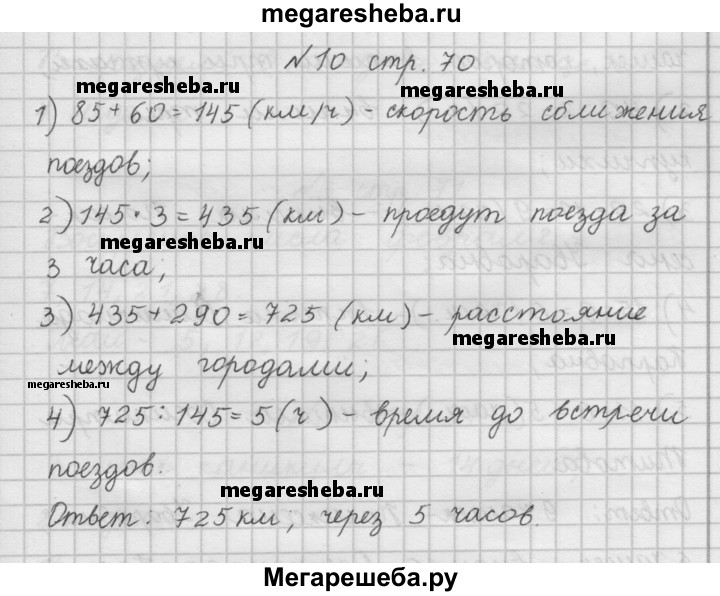 megaresheba.ru
№10 стр. 70
megaresheba.ru
megaresheba.ru
1) 85+60=145 (км/ч) - скорость сближения
поездов;
2) 145·3=435 (км) - проедут поезда за
megaresheba.ru
3 часа;
3) 435+290=725 (км) - расстояние
megaresheba.ru
между городами;
megaresheba.ru
4) 725:145=5 (ч) - время до встречи
поездов.
megaresheba.ru
Ответ: 725 км, через 5 часов.
Мегарешеба.ру